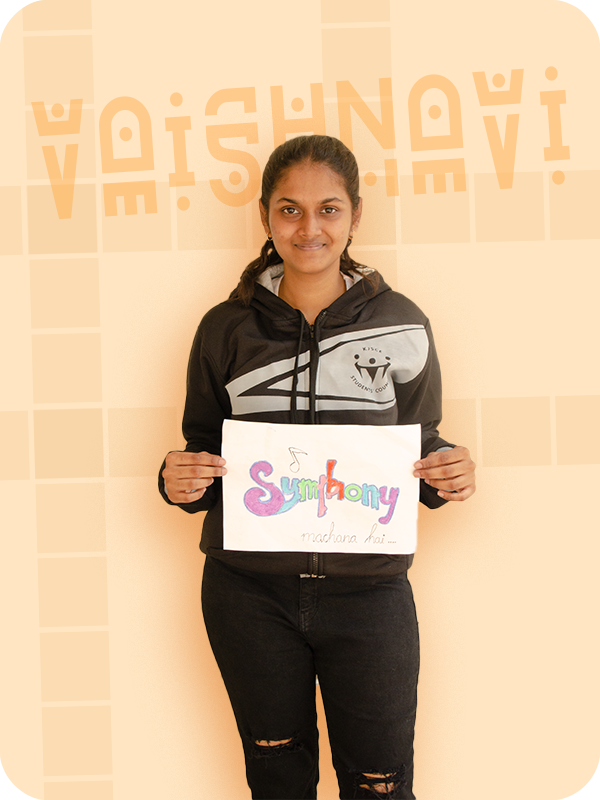 VAISHNAVI
STUDENTS COUN
Symphony
machana hai _